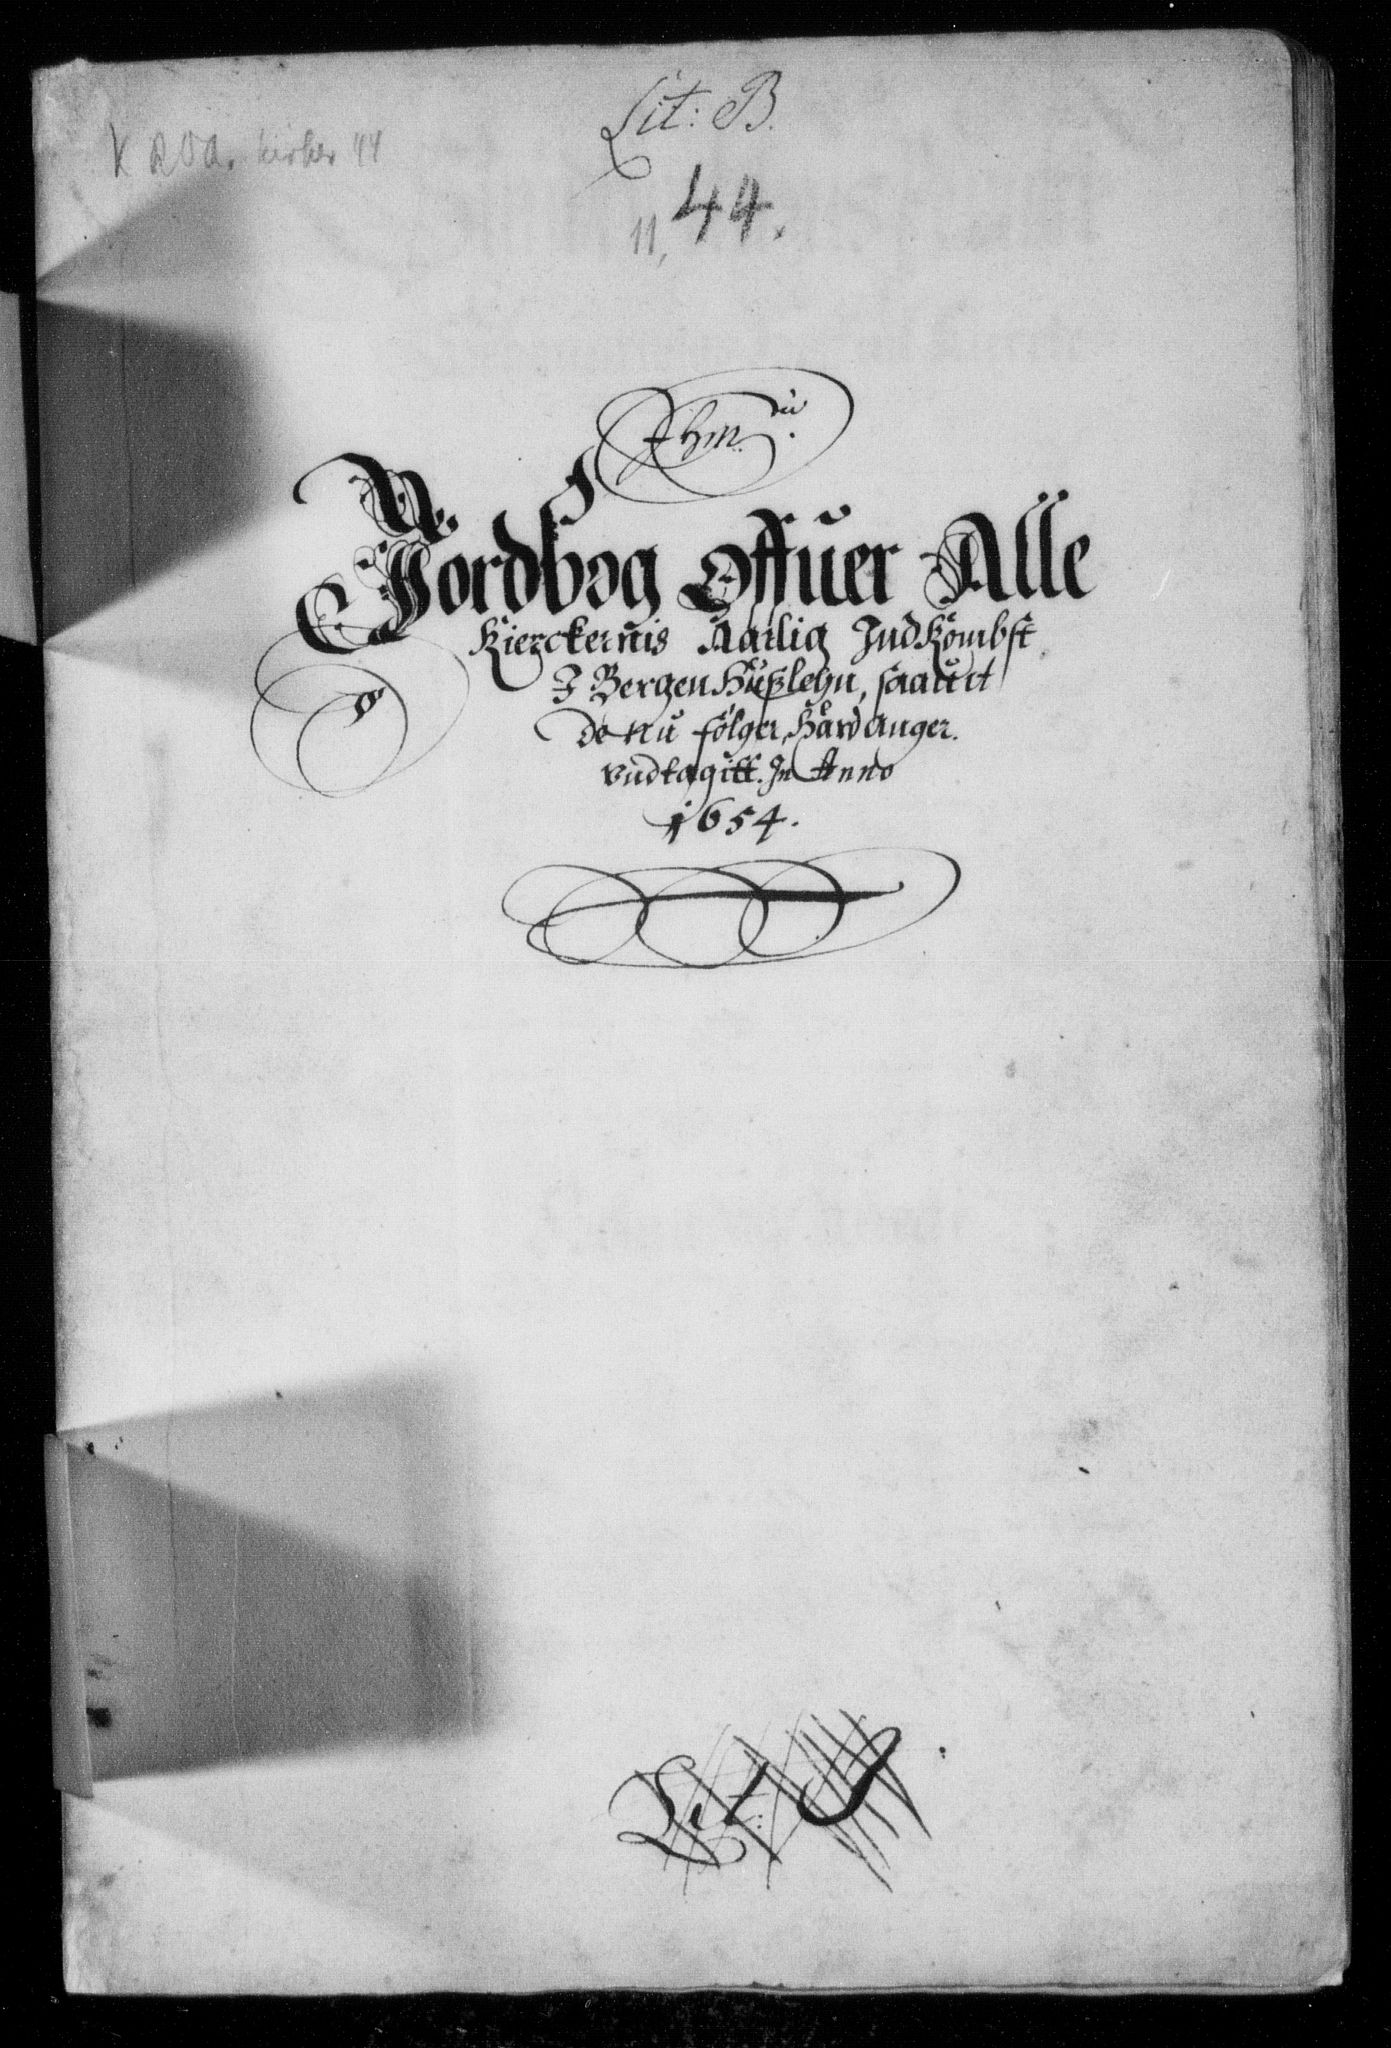 Lit: B.
kirker 44
44.
11,
Jordbog Offuer Alle
Kierckernis Aarlig Indkombst
I Bergenhußlehn, saauit
de nu følger, Hardanger
vndtagitt. In Anno
1654.